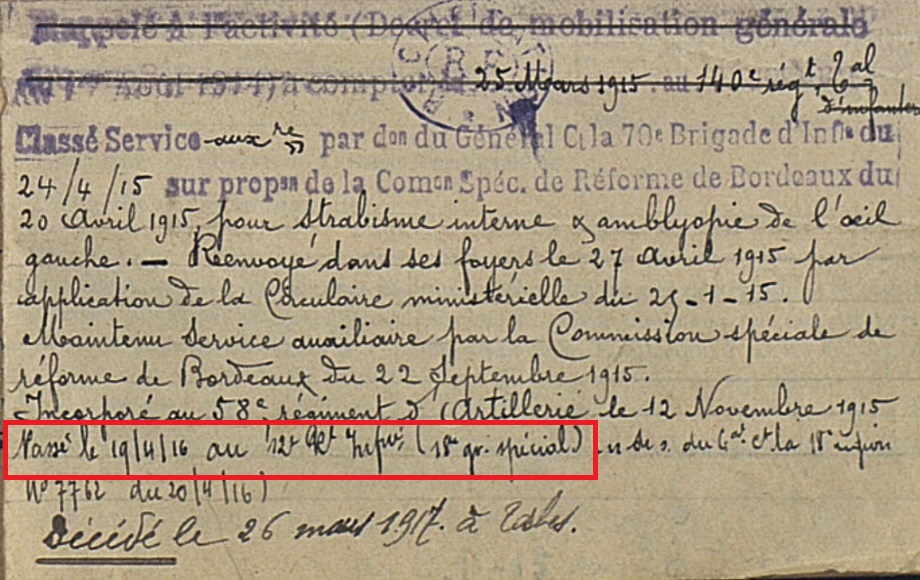 Rappelé à l'activité (Décret de mobilisation générale
du 1er Août 1914) à compter du 25 Mars 1915. au 140e régt tal
d'infanterie
Classé Service auxre par don du Général Ct la 70e Brigade d'Infie du
24/4/15 sur propon de la Comon Spéc. de Réforme de Bordeaux du
20 Avril 1915, pour strabisme interne & amblyopie de l'œil
gauche. — Renvoyé dans ses foyers le 27 Avril 1915 par
application de la Circulaire ministérielle du 25-1-15.
Maintenu Service auxiliaire par la Commission spéciale de
réforme de Bordeaux du 22 Septembre 1915.
Incorporé au 58e régiment d'Artillerie le 12 Novembre 1915
Passé le 19/4/16 au (18e gr. spécial) du Gal Ct la 18e région
No 7762 du 20/4/16)
Décédé le 26 mars 1917. à